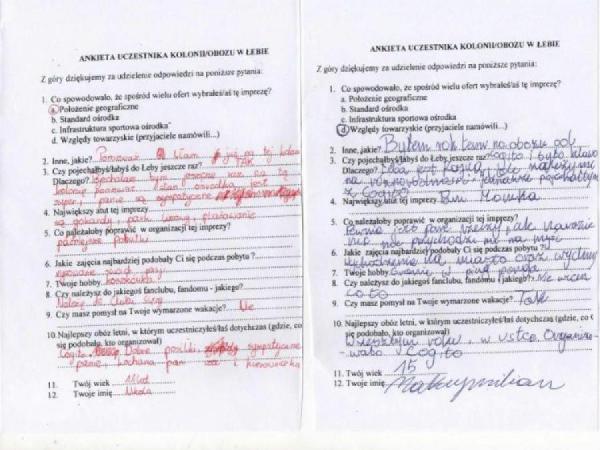 ANKIETA UCZESTNIKA KOLONII/OBOZU W ŁEBIE
Z góry dziękujemy za udzielenie odpowiedzi na poniższe pytania:
1. Co spowodowało, że spośród wielu ofert wybrałeś/aś tę imprezę?
a. Położenie geograficzne
b. Standard ośrodka
c. Infrastruktura sportowa ośrodka
d. Względy towarzyskie (przyjaciele namówili...)
2. Inne, jakie? Ponieważ już na tej
3. Czy pojechałbyś/łabyś do Łeby jeszcze raz? TAK
Dlaczego? bym jeszcze raz na tą
kolonię ponieważ stan ośrodka jest
super, panie są sympatyczne
4. Największy atut tej imprezy
są gokardy park linowy, plażowanie
5. Co należałoby poprawić w organizacji tej imprezy?
późniejsze pobudki
6. Jakie zajęcia najbardziej podobały Ci się podczas pobytu?
7. Twoje hobby
8. Czy należysz do jakiegoś fanclubu, fandomu - jakiego?
Należę do Clubu
9. Czy masz pomysł na Twoje wymarzone wakacje? Nie
10. Najlepszy obóz letni, w którym uczestniczyłeś/łaś dotychczas (gdzie, co
się podobało, kto organizował)
Cogito Dobre posiłki, sympatyczne
panie, kochana pani i kierowniczka
11. Twój wiek
12. Twoje imię Nikola
ANKIETA UCZESTNIKA KOLONII/OBOZU W ŁEBIE
Z góry dziękujemy za udzielenie odpowiedzi na poniższe pytania:
1. Co spowodowało, że spośród wielu ofert wybrałeś/aś tę imprezę?
a. Położenie geograficzne
b. Standard ośrodka
c. Infrastruktura sportowa ośrodka
d. Względy towarzyskie (przyjaciele namówili...)
2. Inne, jakie? Byłem rok temu na obozie od
3. Czy pojechałbyś/łabyś do Łeby jeszcze raz? Cogito i było
Dlaczego? Łeba jest
na
z Cogito
4. Największy atut tej imprezy Pani Monika
5. Co należałoby poprawić w organizacji tej imprezy?
nie przychodzi mi na myśl
6. Jakie zajęcia najbardziej podobały Ci się podczas pobytu?
Wychodzenie na miasto oraz
7. Twoje hobby Granie w ping ponga
8. Czy należysz do jakiegoś fanclubu, fandomu - jakiego? Nie wiem
co to
9. Czy masz pomysł na Twoje wymarzone wakacje? Tak
10. Najlepszy obóz letni, w którym uczestniczyłeś/łaś dotychczas (gdzie, co
się podobało, kto organizował)
W zeszłym roku, w Ustce. Organizo-
wało Cogito
11. Twój wiek 15
12. Twoje imię Maksymilian